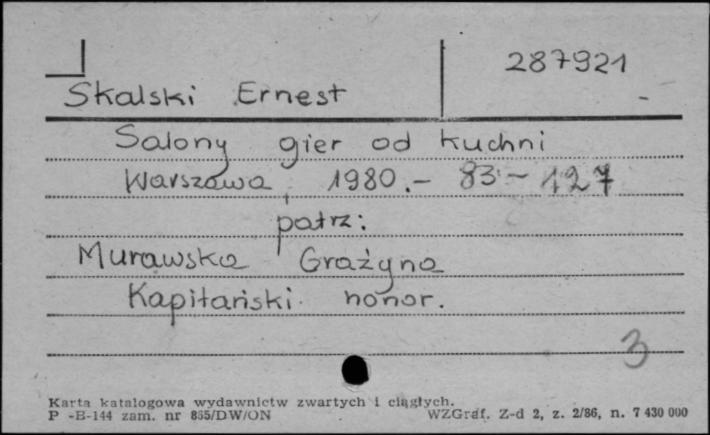 287921
Skalski Ernest
Salony gier od kuchni
Warszawa, 1980.- 83 - 127
patrz:
Murawska Grażyna
Kapitański honor.
3
Karta katalogowa wydawnictw zwartych i ciągłych.
P -B-144 zam. nr 855/DW/ON WZGraf. Z-d 2, z. 2/86, n. 7 430 000